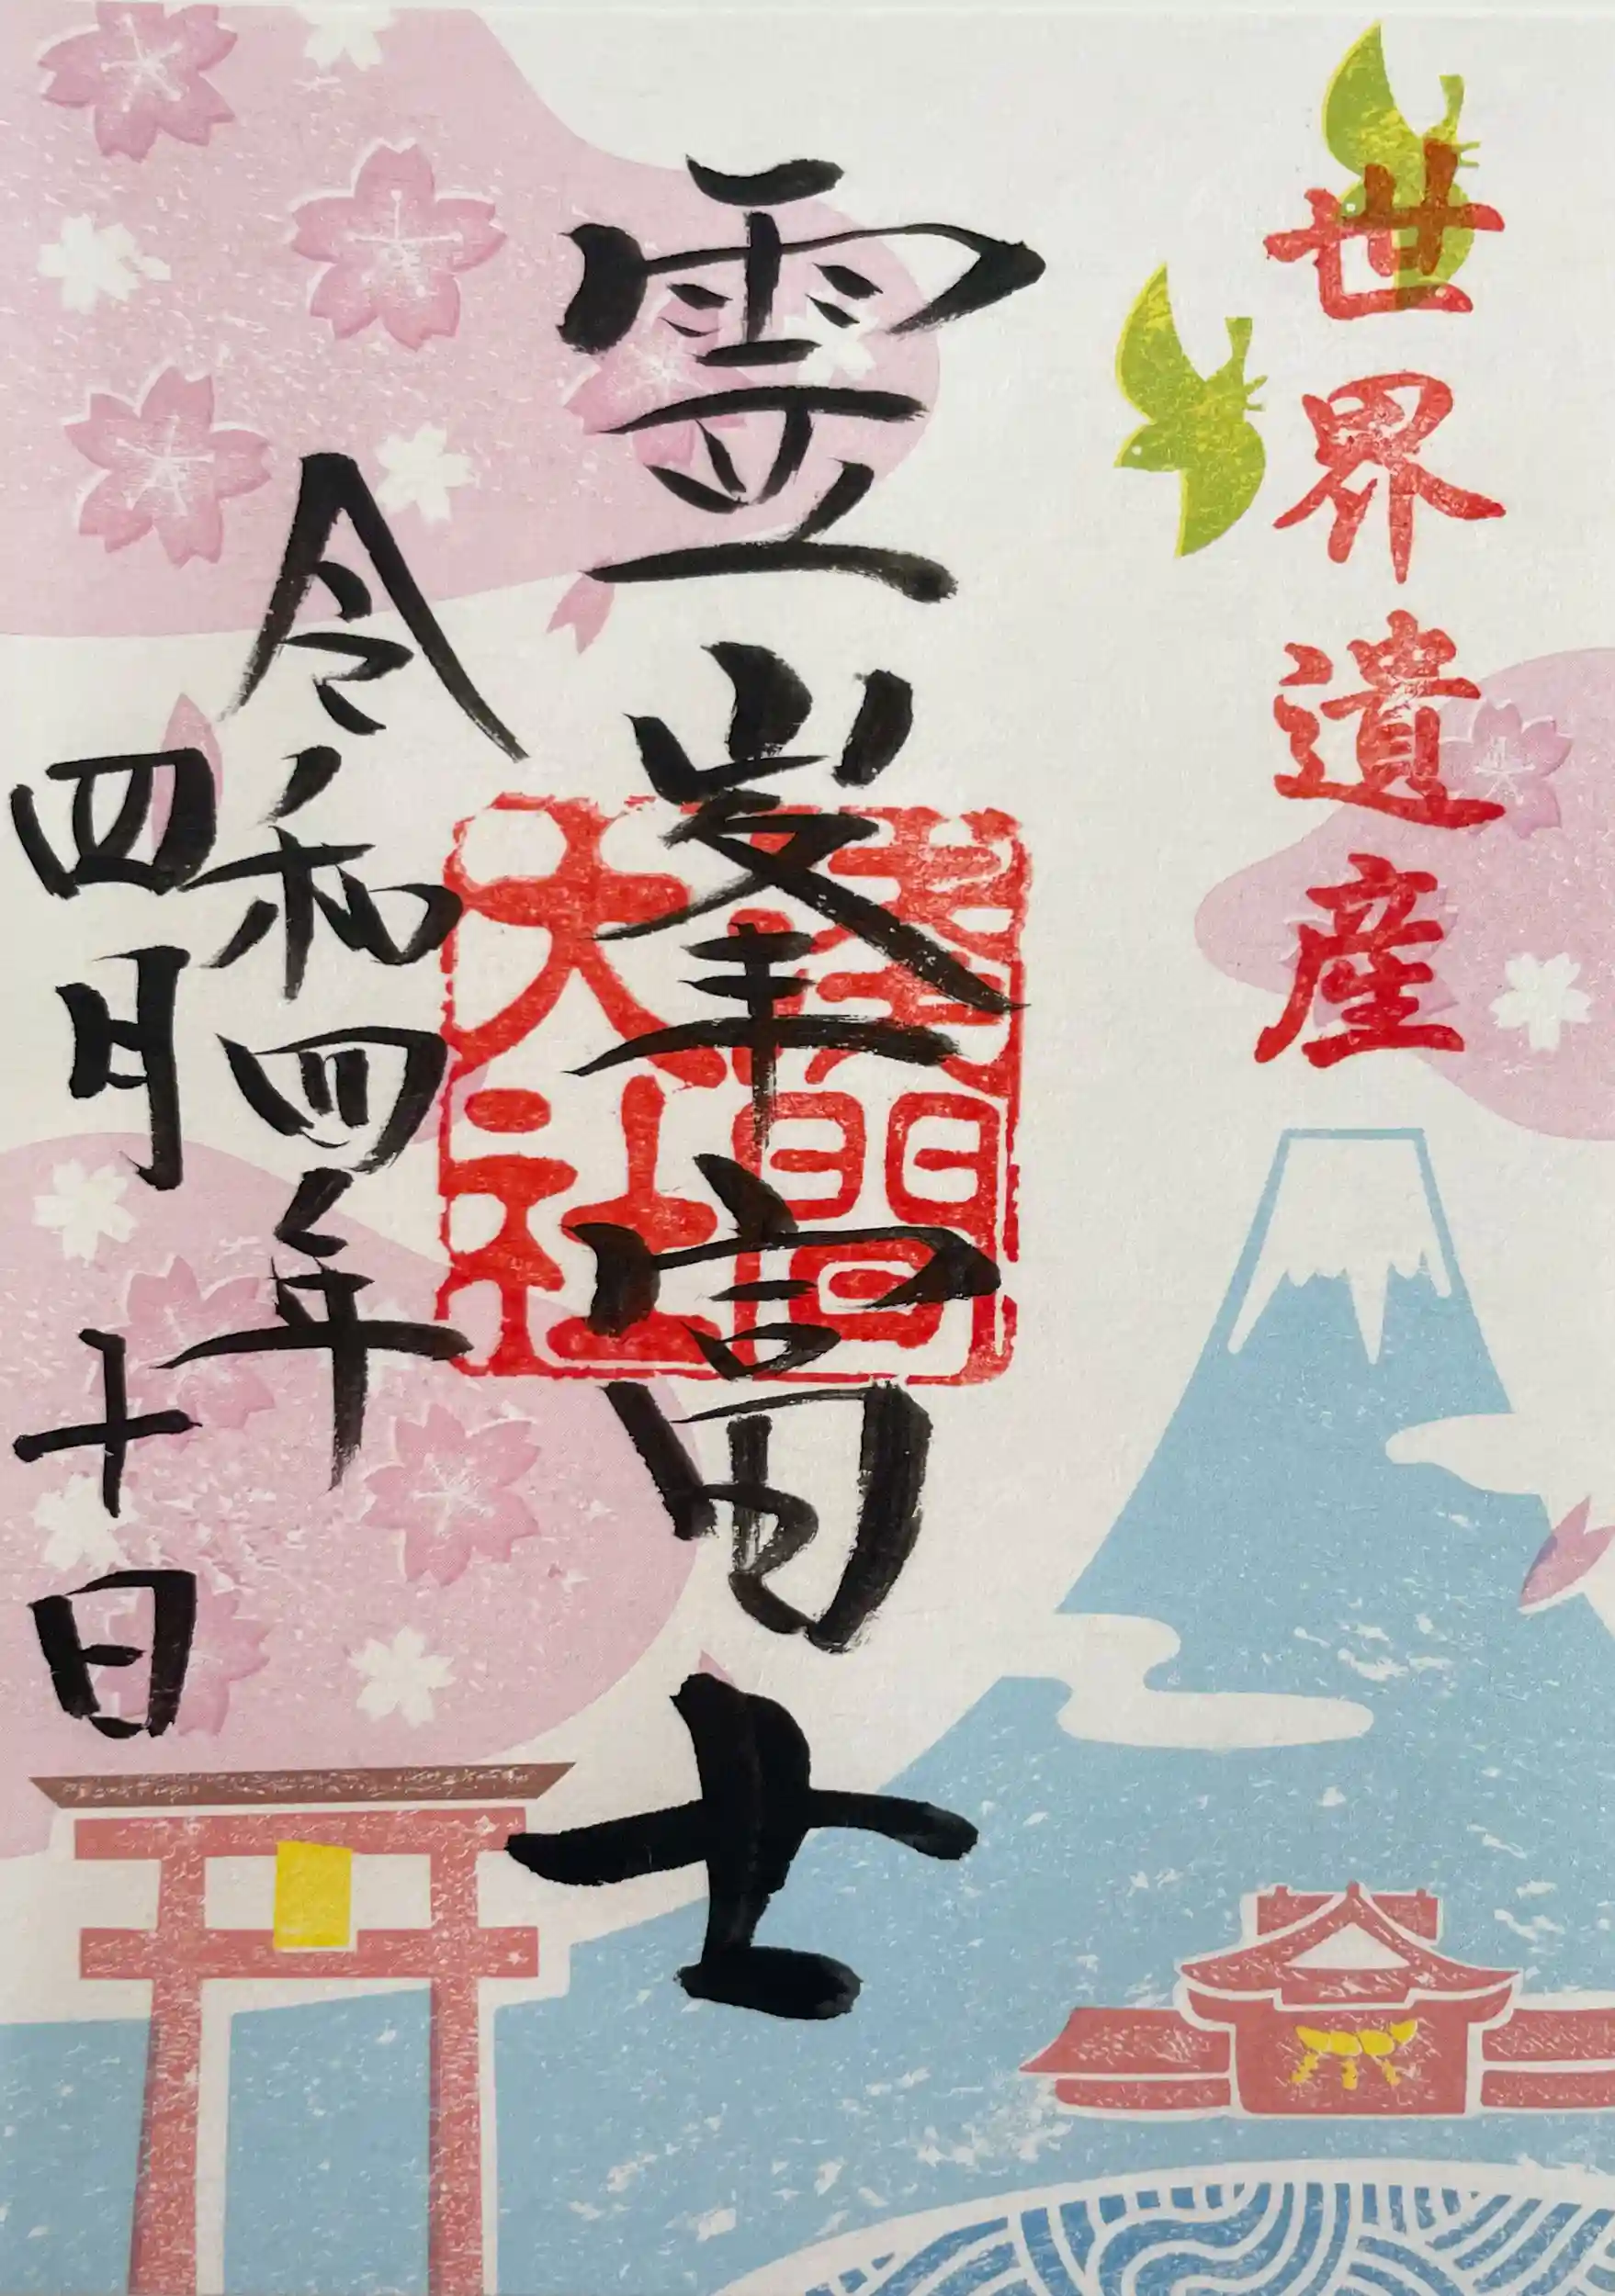 世界遺産
霊峯富士
淺間大社
令和四年
四月十日